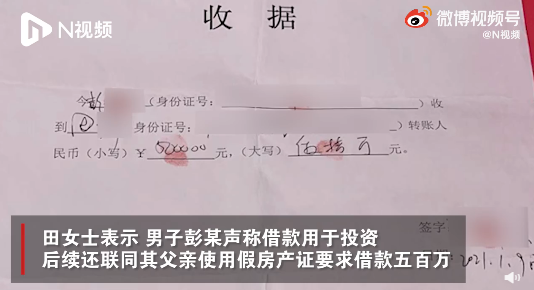 N视频
微博视频号
@N视频
收 据
今彭（身份证号：）收
到 身份证号：）转账人
民币（小写）￥500000元，（大写）伍拾万元。
签字：
2021.1.9
田女士表示 男子彭某声称借款用于投资
后续还联同其父亲使用假房产证要求借款五百万